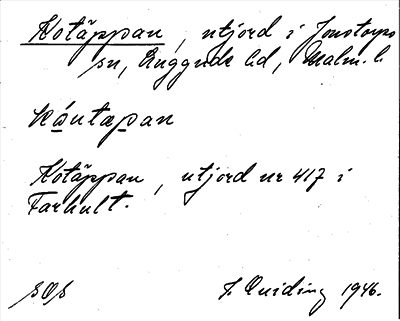 Kotäppan, utjord i Jonstorps
sn, Luggude hd, Malm. l.
kåutapan
Kotäppan, utjord nr 417 i
Farhult.
SOS
J. Quiding 1946.